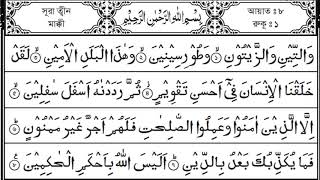 সূরা ত্বীন
মাক্কী
بِسْمِ اللهِ الرَّحْمٰنِ الرَّحِيْمِ
আয়াত : ৮
রুকু : ১
وَالتِّيْنِ وَالزَّيْتُوْنِ ۝ وَطُوْرِ سِيْنِيْنَ ۝ وَهٰذَا الْبَلَدِ الْاَمِيْنِ ۝ لَقَدْ
خَلَقْنَا الْاِنْسَانَ فِيْٓ اَحْسَنِ تَقْوِيْمٍ ۝ ثُمَّ رَدَدْنٰهُ اَسْفَلَ سٰفِلِيْنَ ۝
اِلَّا الَّذِيْنَ اٰمَنُوْا وَعَمِلُوا الصّٰلِحٰتِ فَلَهُمْ اَجْرٌ غَيْرُ مَمْنُوْنٍ ۝
فَمَا يُكَذِّبُكَ بَعْدُ بِالدِّيْنِ ۝ اَلَيْسَ اللهُ بِاَحْكَمِ الْحٰكِمِيْنَ ۝